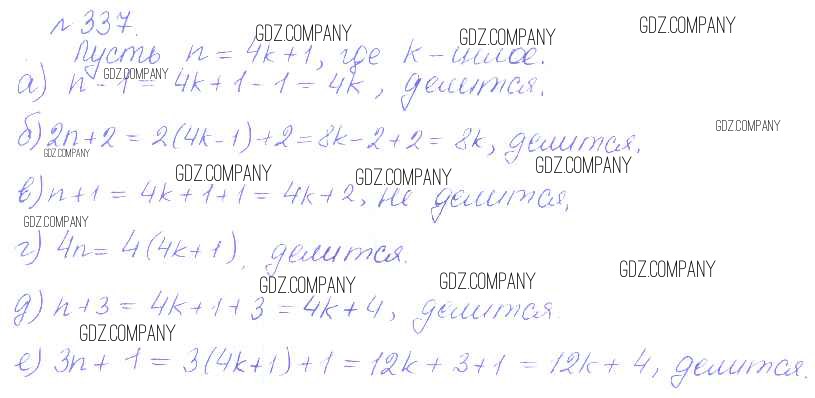 № 337.
GDZ.COMPANY GDZ.COMPANY GDZ.COMPANY
Пусть n = 4k+1, где k – целое.
GDZ.COMPANY
а) n - 1 = 4k + 1 - 1 = 4k, делится.
GDZ.COMPANY
б) 2n+2 = 2(4k-1)+2 = 8k-2+2 = 8k, делится.
GDZ.COMPANY
GDZ.COMPANY GDZ.COMPANY GDZ.COMPANY
в) n+1 = 4k+1+1 = 4k+2, не делится,
GDZ.COMPANY
г) 4n = 4(4k+1), делится.
GDZ.COMPANY GDZ.COMPANY GDZ.COMPANY
д) n+3 = 4k+1+3 = 4k+4, делится.
GDZ.COMPANY
е) 3n+1 = 3(4k+1)+1 = 12k+3+1 = 12k+4, делится.